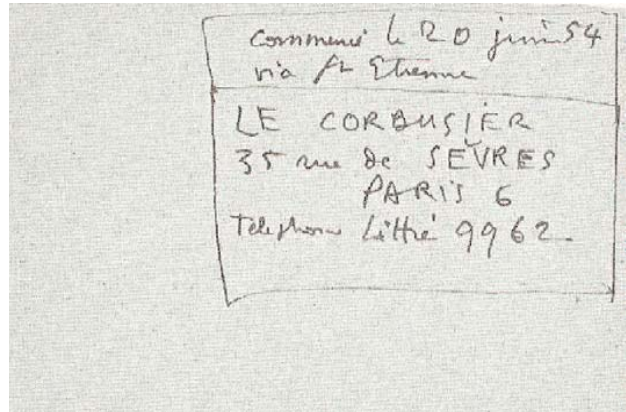 commencé le 20 juin 54
via St Etienne
LE CORBUSIER
35 rue de SEVRES
PARIS 6
Téléphone Littré 9962